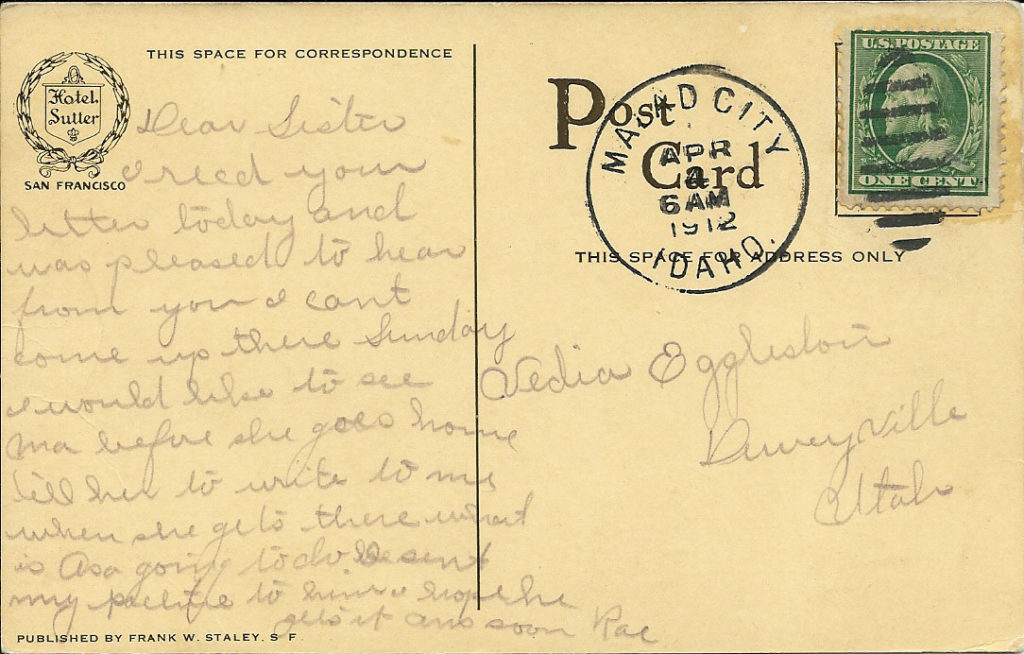 THIS SPACE FOR CORRESPONDENCE
Hotel
Sutter
SAN FRANCISCO
Dear Sister
I recd your
letter today and
was pleased to hear
from you I cant
come up there Sunday
I would like to see
Ma before she goes home
tell her to write to me
when she gets there what
is Asa going to do I sent
my picture to him I hope he
gets it ans soon Rae
PUBLISHED BY FRANK W. STALEY, S F.
Post
Card
MALAD CITY
APR
6 AM
1912
IDAHO.
U.S. POSTAGE
ONE CENT
THIS SPACE FOR ADDRESS ONLY
Vedia Eggleston
Deweyville
Utah